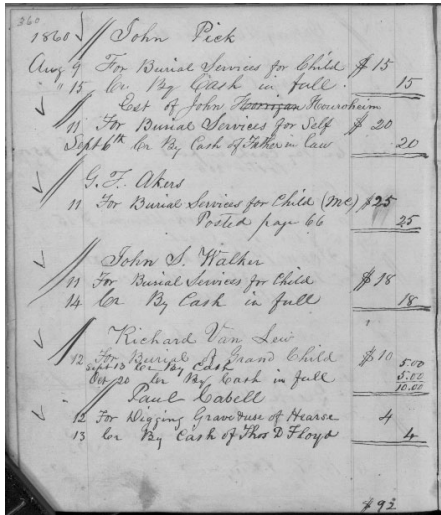 360
1860 John Pick
Aug 9 For Burial Services for Child $15
" 15 Cr By Cash in full 15
Est of John Horrigan Houroheim
11 For Burial Services for Self $ 20
Sept 6th Cr By Cash of Father in law 20
G. F. Akers
11 For Burial Services for Child (Mc) $25
Posted page 66 25
John S. Walker
11 For Burial Services for Child $18
14 Cr By Cash in full 18
Richard Van Lew
12 For Burial of Grand Child $10
Sept 13 Cr By Cash 5.00
Oct 20 Cr By Cash in full 5.00
10.00
Paul Cabell
12 For Digging Grave & use of Hearse 4
13 Cr By Cash of Thos D Floyd 4
$92